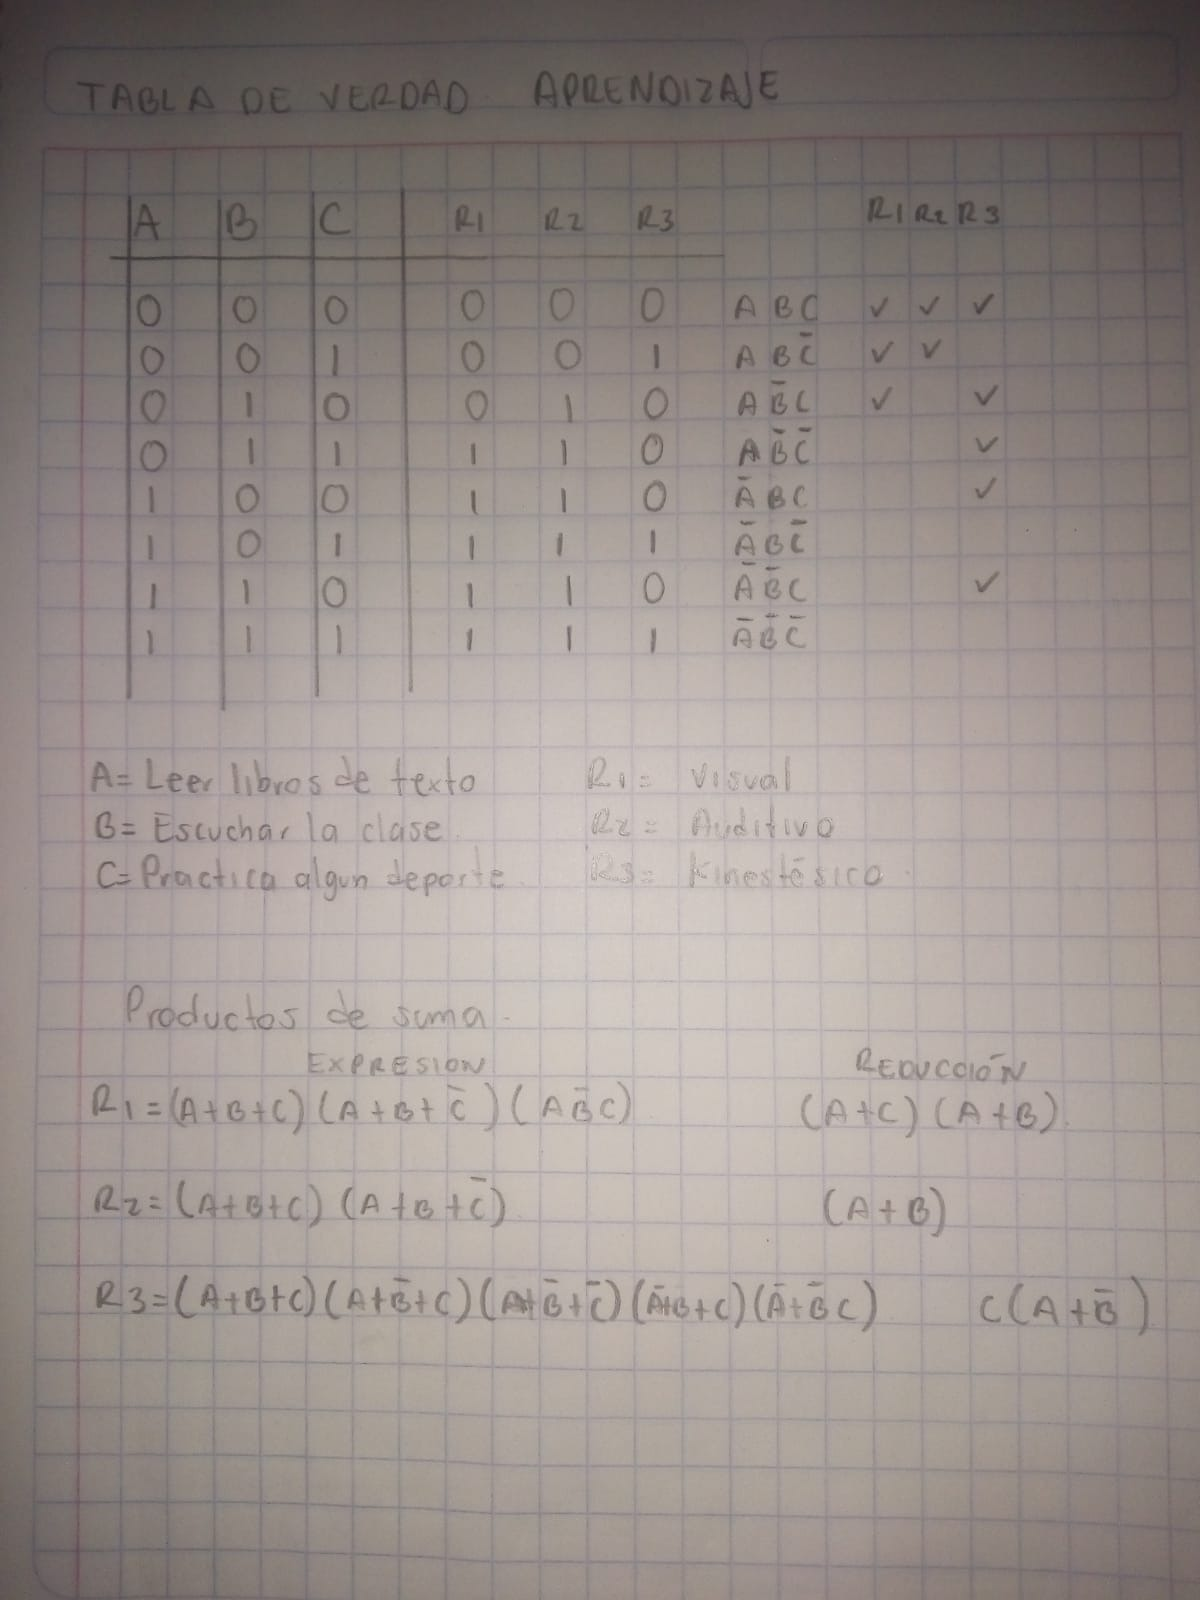 TABLA DE VERDAD APRENDIZAJE
A B C R1 R2 R3 R1 R2 R3
0 0 0 0 0 0 A B C ✓ ✓ ✓
0 0 1 0 0 1 A B C̄ ✓ ✓
0 1 0 0 1 0 A B̄ C ✓ ✓
0 1 1 1 1 0 A B̄ C̄ ✓
1 0 0 1 1 0 Ā B C ✓
1 0 1 1 1 1 Ā B C̄
1 1 0 1 1 0 Ā B̄ C ✓
1 1 1 1 1 1 Ā B̄ C̄
A= Leer libros de texto R1= Visual
B= Escuchar la clase. R2= Auditivo
C= Practica algun deporte. R3= Kinestésico.
Productos de suma.
EXPRESION REDUCCIÓN
R1=(A+B+C)(A+B+C̄)(AB̄C) (A+C)(A+B).
R2=(A+B+C)(A+B+C̄) (A+B)
R3=(A+B+C)(A+B̄+C)(A+B̄+C̄)(Ā+B+C)(Ā+B̄C) C(A+B̄)